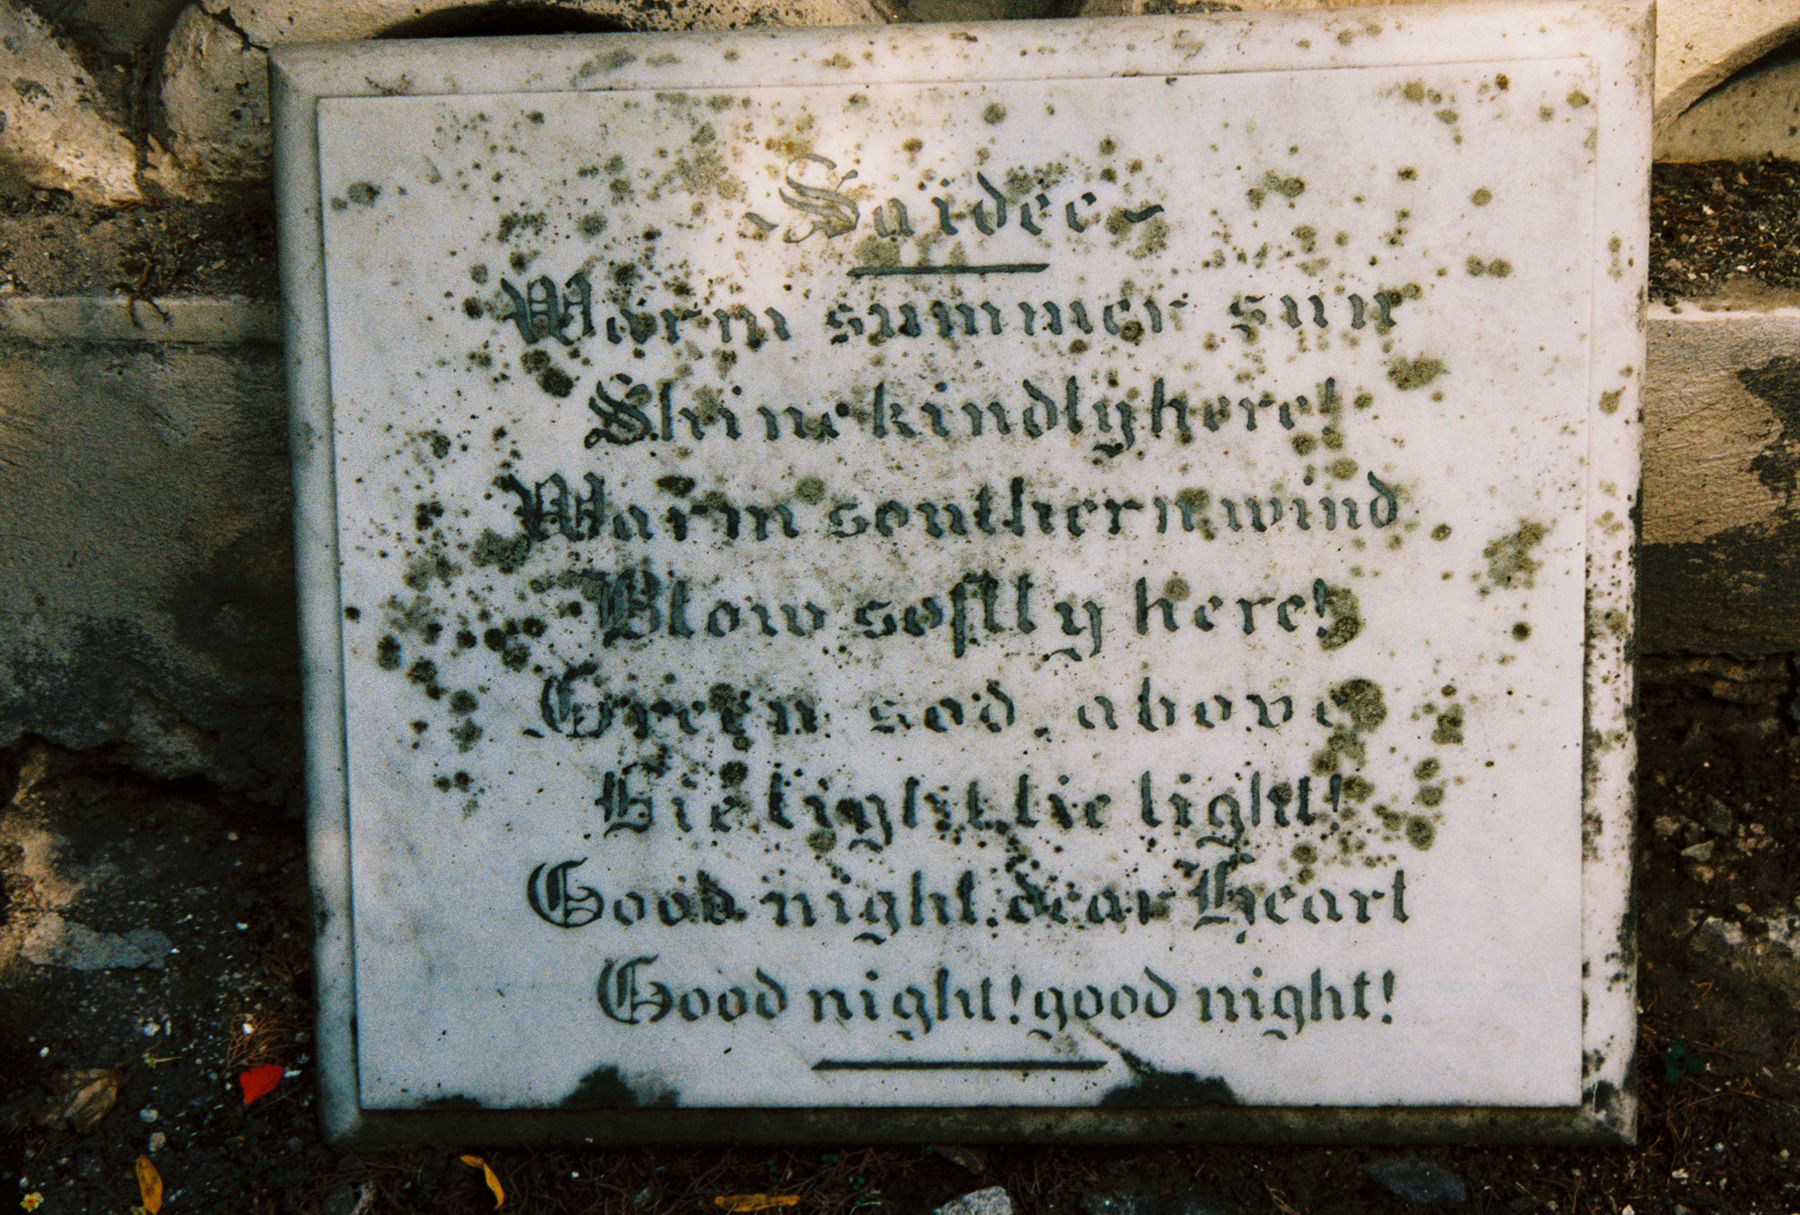 ~Saidee~
Warm summer sun
Shine kindly here!
Warm southern wind
Blow softly here!
Green sod, above
Lie light, lie light!
Good night, dear Heart
Good night! good night!